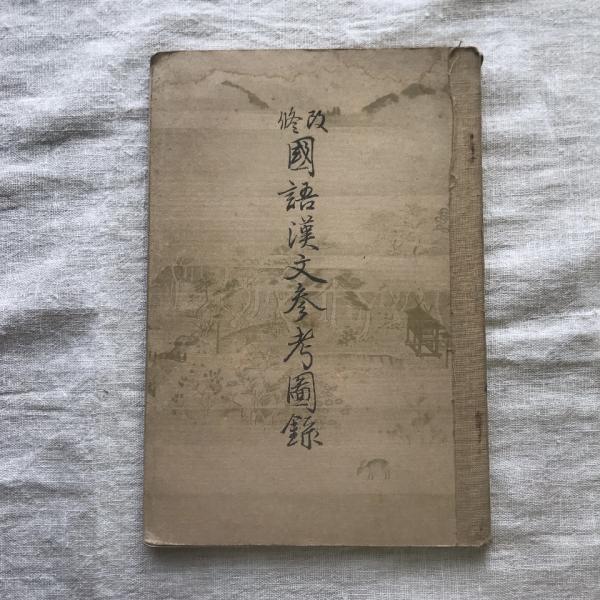 改修
國語漢文参考圖錄